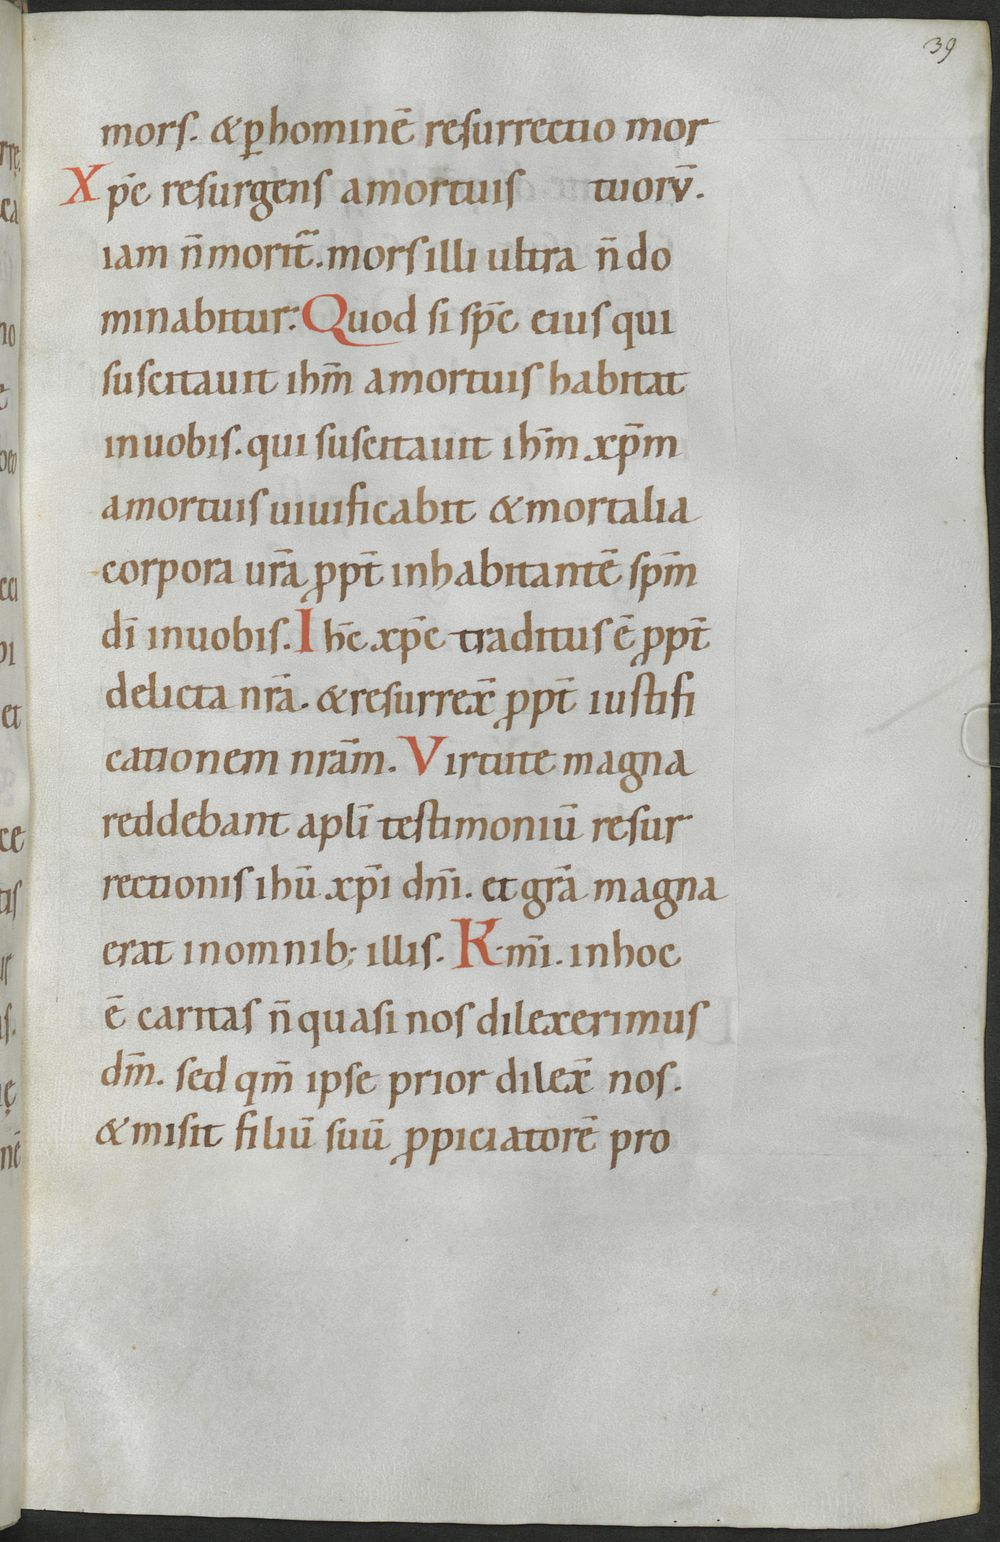 39
mors. & ꝑhominē resurrectio mor
Xp̄c resurgens amortuis tuorv̄.
iam n̄ morit̄. mors illi ultra n̄ do
minabitur. Quod si sp̄c eius qui
suscitauit ihm̄ amortuis habitat
inuobis. qui suscitauit ihm̄ xp̄m
amortuis uiuificabit & mortalia
corpora ur̄a ꝓpt̄ inhabitantē sp̄m
dī inuobis. Ih̄c xp̄c traditus ē ꝓpt̄
delicta nr̄a. & resurrex̄ ꝓpt̄ iustifi
cationem nr̄am. Virtute magna
reddebant apl̄i testimoniū resur
rectionis ihū xp̄i dn̄i. et gr̄a magna
erat inomnib; illis. K mī. inhoc
ē caritas n̄ quasi nos dilexerimus
dm̄. sed qm̄ ipse prior dilex̄ nos.
& misit filiū suū ꝓpiciatorē pro